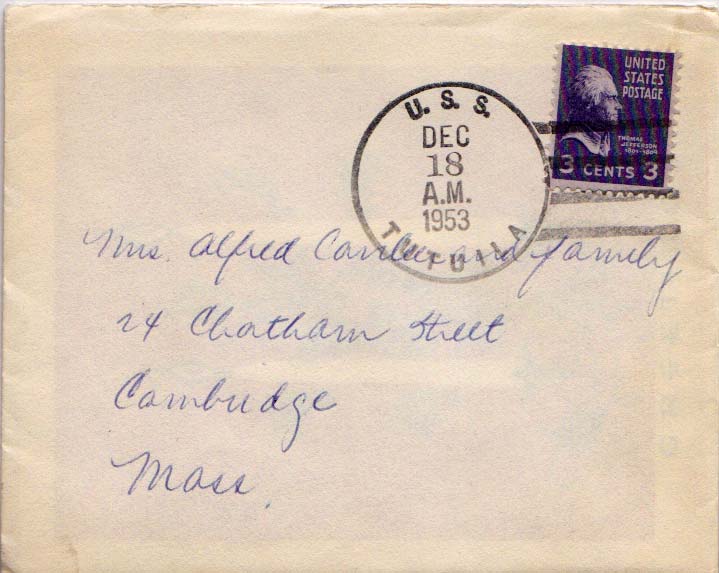 UNITED
STATES
POSTAGE
THOMAS
JEFFERSON
1801-1809
3 CENTS 3
U. S. S.
DEC
18
A.M.
1953
TUTUILA
Mrs. Alfred and family
24 Chatham Street
Cambridge
Mass.